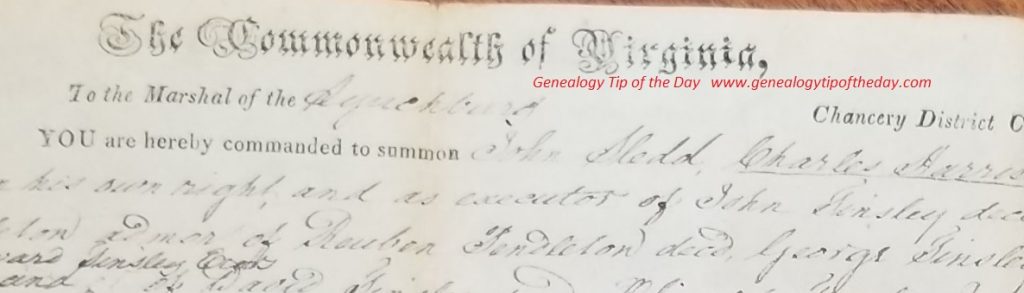 The Commonwealth of Virginia,
Genealogy Tip of the Day www.genealogytipoftheday.com
To the Marshal of the Lynchburg Chancery District C
YOU are hereby commanded to summon John Medd, Charles Harris
his own right, and as executor of John Tinsley decd
admor of Reuben Pendleton decd, George Tinsley
Tinsley
and David